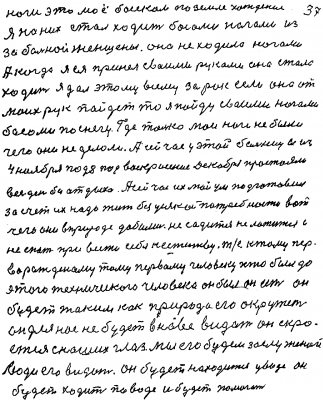 37
ноги это моё босиком по земле хождение
Я на них стал ходить босыми ногами из
за больной женщины. она не ходила ногами
А когда я ея принял своими руками она стала
ходить я дал этому всему зарок если она от
моих рук пойдет то я пойду своими ногами
босыми по снегу. Где только мои ноги не были
чего они не делали. А сейчас у этой
4 ноября по 8 воскресение Декабря простояли
без отдыха. А сейчас их мой ум подготовил
за счет их надо жить без всякой потребности вот
чего они в природе добились. не садится не ложится и
не спать привести себя к естеству. т/е к тому пер
ворожденному тому первому человеку кто был до
этого технического человека он был он есть он
будет таким как природа его окружет
он для нас не будет виден он скро
ется с наших глаз. мы его будем заслуженой
люди его видать. он будет находится у воде он
будет ходить по воде и будет помогать